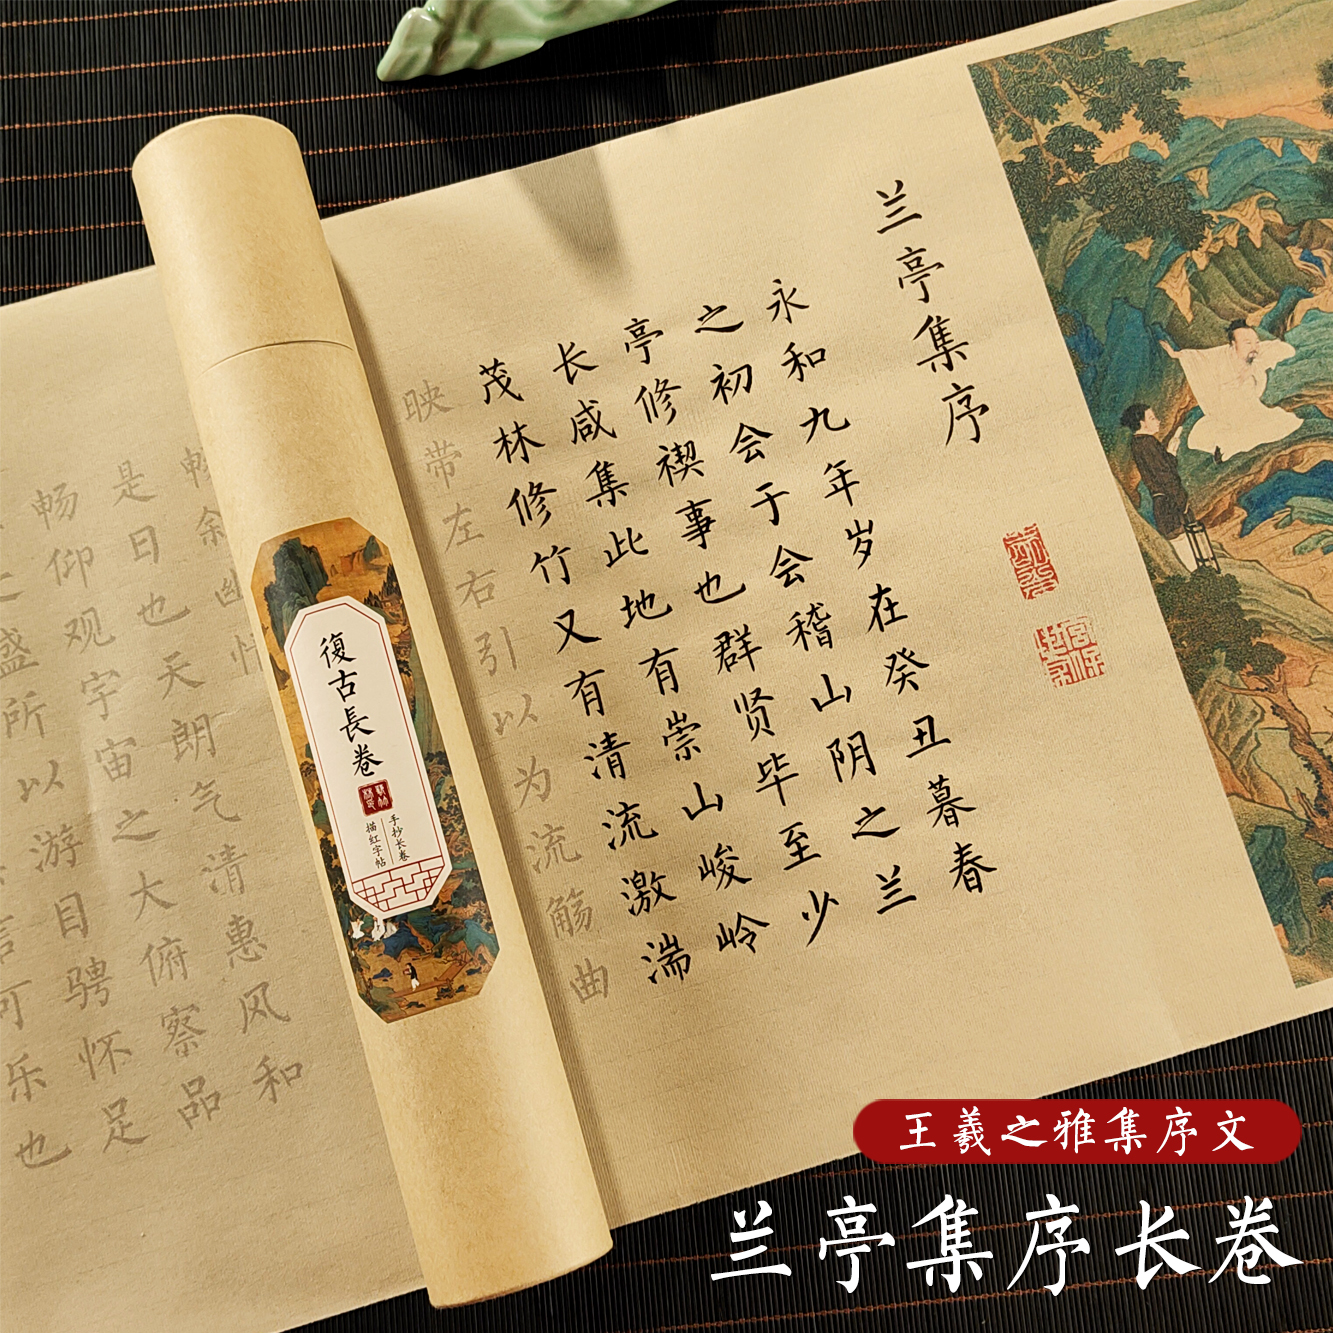 兰亭集序
永和九年岁在癸丑暮春
之初会于会稽山阴之兰
亭修禊事也群贤毕至少
长咸集此地有崇山峻岭
茂林修竹又有清流激湍
映带左右引以为流觞曲
畅叙幽情
是日也天朗气清惠风和
畅仰观宇宙之大俯察品
之盛所以游目骋怀足
可乐也
復古長卷
手抄长卷
描红字帖
王羲之雅集序文
兰亭集序长卷